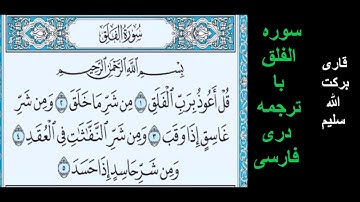 سُورَةُ الفَلَقِ
بِسْمِ اللَّهِ الرَّحْمَٰنِ الرَّحِيمِ
قُلْ أَعُوذُ بِرَبِّ الْفَلَقِ ١ مِن شَرِّ مَا خَلَقَ ٢ وَمِن شَرِّ
غَاسِقٍ إِذَا وَقَبَ ٣ وَمِن شَرِّ النَّفَّاثَاتِ فِي الْعُقَدِ ٤
وَمِن شَرِّ حَاسِدٍ إِذَا حَسَدَ ٥
سوره
الفلق
با
ترجمه
دری
فارسی
قاری
برکت
الله
سلیم